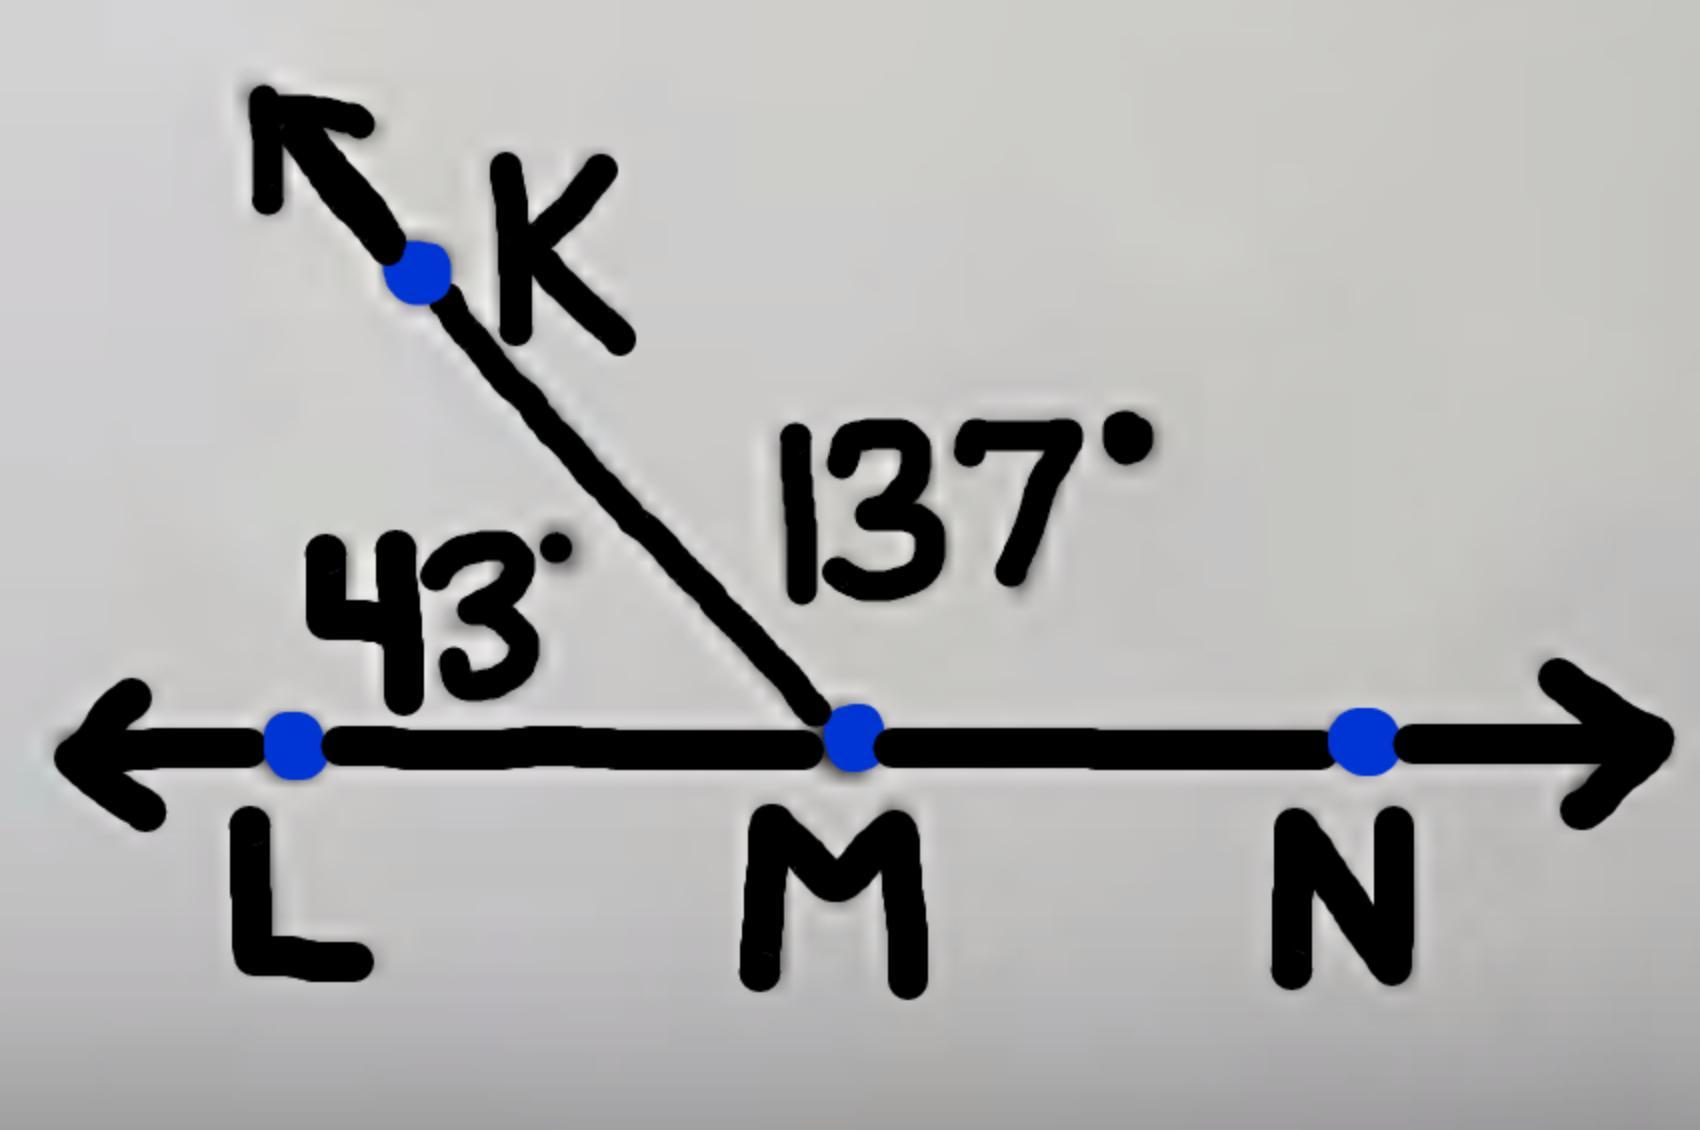 K
137°
43°
L M N